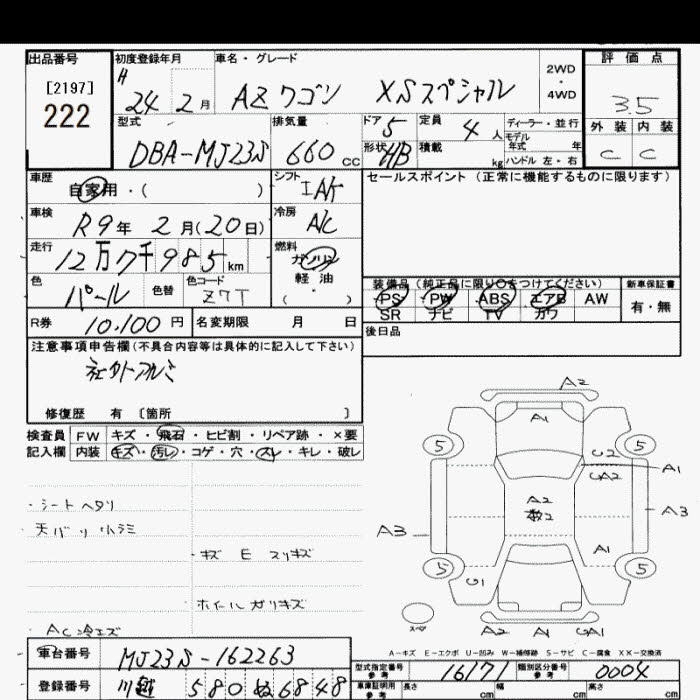 出品番号 初度登録年月 車名・グレード 評価点
[2197] H 2WD
222 24 2月 AZワゴン XSスペシャル ・ 3.5
4WD
型式 排気量 ドア 5 定員 4人 ディーラー・並行 外装 内装
モデル年式 年
DBA-MJ23S 660 cc 形状 HB 積載 kg ハンドル 左・右 C C
車歴 シフト セールスポイント (正常に機能するものに限ります)
自家用・( ) IAT
車検 冷房
R9年 2月(20日) A/C
走行 燃料
12万7千985km ガソリン
色 色替 色コード 軽油 装備品 (純正品に限り○をつけてください) 新車保証書
パール Z7T ( ・ ) PS PW ABS エアB AW 有・無
SR ナビ TV カワ
R券 10,100円 名変期限 月 日 後日品
注意事項申告欄(不具合内容等は具体的に記入して下さい)
社外アルミ
修復歴 有 〔箇所 〕
検査員 FW キズ・飛石・ヒビ割・リペア跡・×要
記入欄 内装 キズ・汚レ・コゲ・穴・スレ・キレ・破レ
・シートヘタリ
天バリ小ラミ
・キズ E スリキズ
ホイールガリキズ
AC冷エズ
A2
A1
5 5
U2
UA2 A1
A2
A3 A3
A1
5 5
G1
スペア A2 A1 UA1
A-キズ E-エクボ U-凹み W-補修跡 S-サビ C-腐食 XX-交換済
車台番号 MJ23S-162263
型式指定番号 参考 16171 類別区分番号 参考 0004
登録番号 川越 580 ぬ 6848
車庫証明用 参考 長さ cm 幅 cm 高さ cm